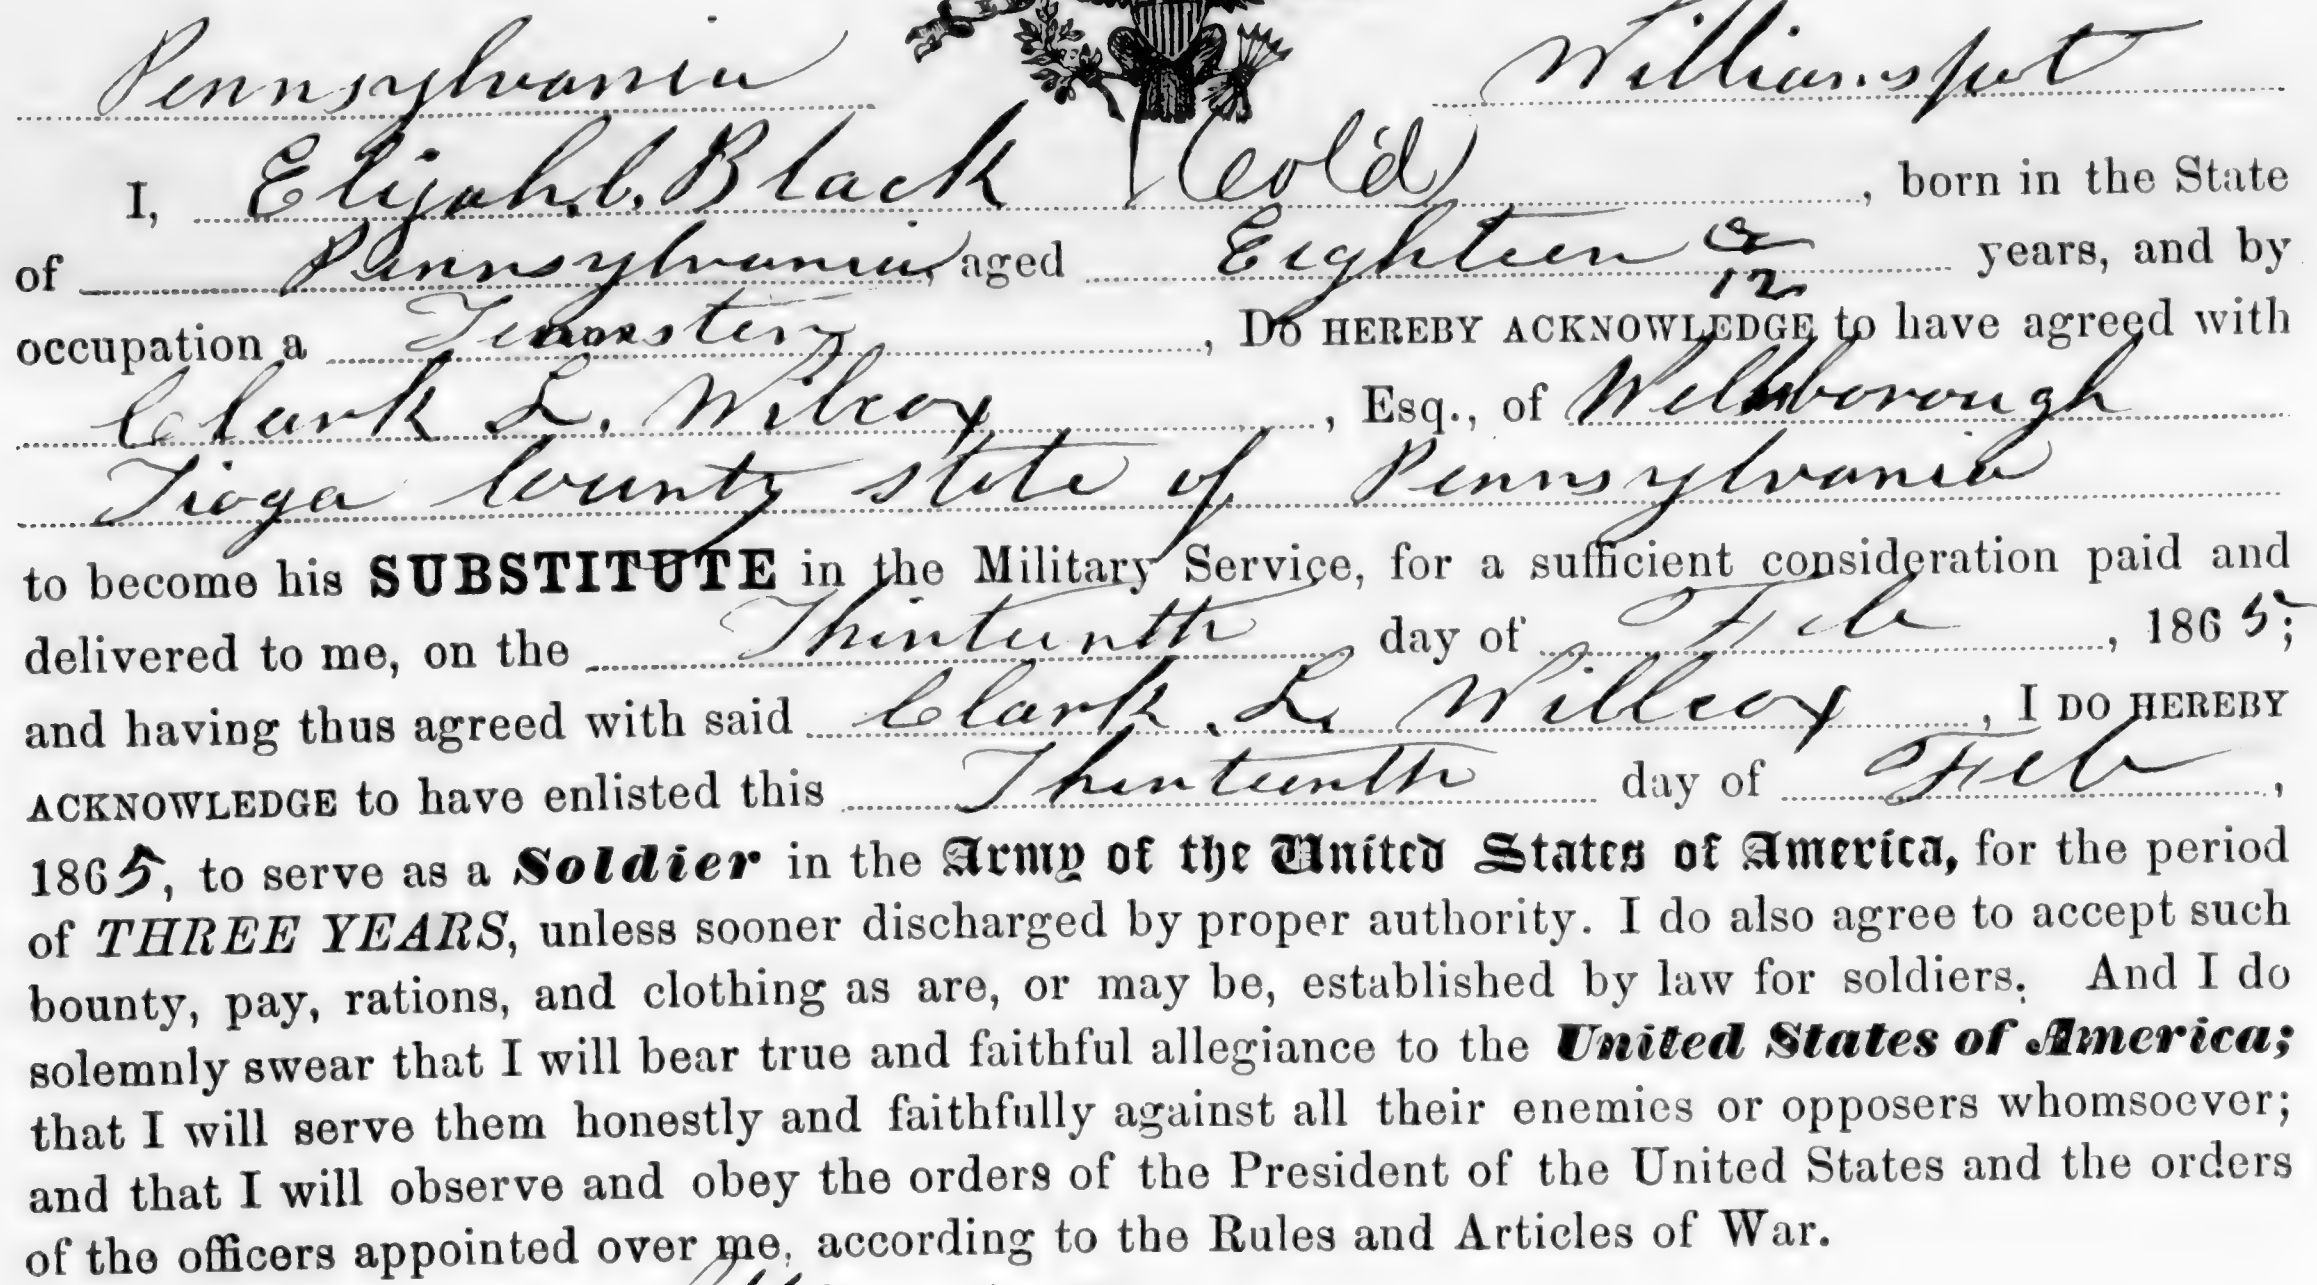 Pennsylvania Williamsport
I, Elijah C. Black (Col'd) , born in the State
of Pennsylvania, aged Eighteen 8/12 years, and by
occupation a Teamster , DO HEREBY ACKNOWLEDGE to have agreed with
Clark L. Wilcox , Esq., of Wellsborough
Tioga County state of Pennsylvania
to become his SUBSTITUTE in the Military Service, for a sufficient consideration paid and
delivered to me, on the Thirteenth day of Feb , 1865;
and having thus agreed with said Clark L. Willcox , I DO HEREBY
ACKNOWLEDGE to have enlisted this Thirteenth day of Feb ,
1865, to serve as a Soldier in the Army of the United States of America, for the period
of THREE YEARS, unless sooner discharged by proper authority. I do also agree to accept such
bounty, pay, rations, and clothing as are, or may be, established by law for soldiers. And I do
solemnly swear that I will bear true and faithful allegiance to the United States of America;
that I will serve them honestly and faithfully against all their enemies or opposers whomsoever;
and that I will observe and obey the orders of the President of the United States and the orders
of the officers appointed over me, according to the Rules and Articles of War.